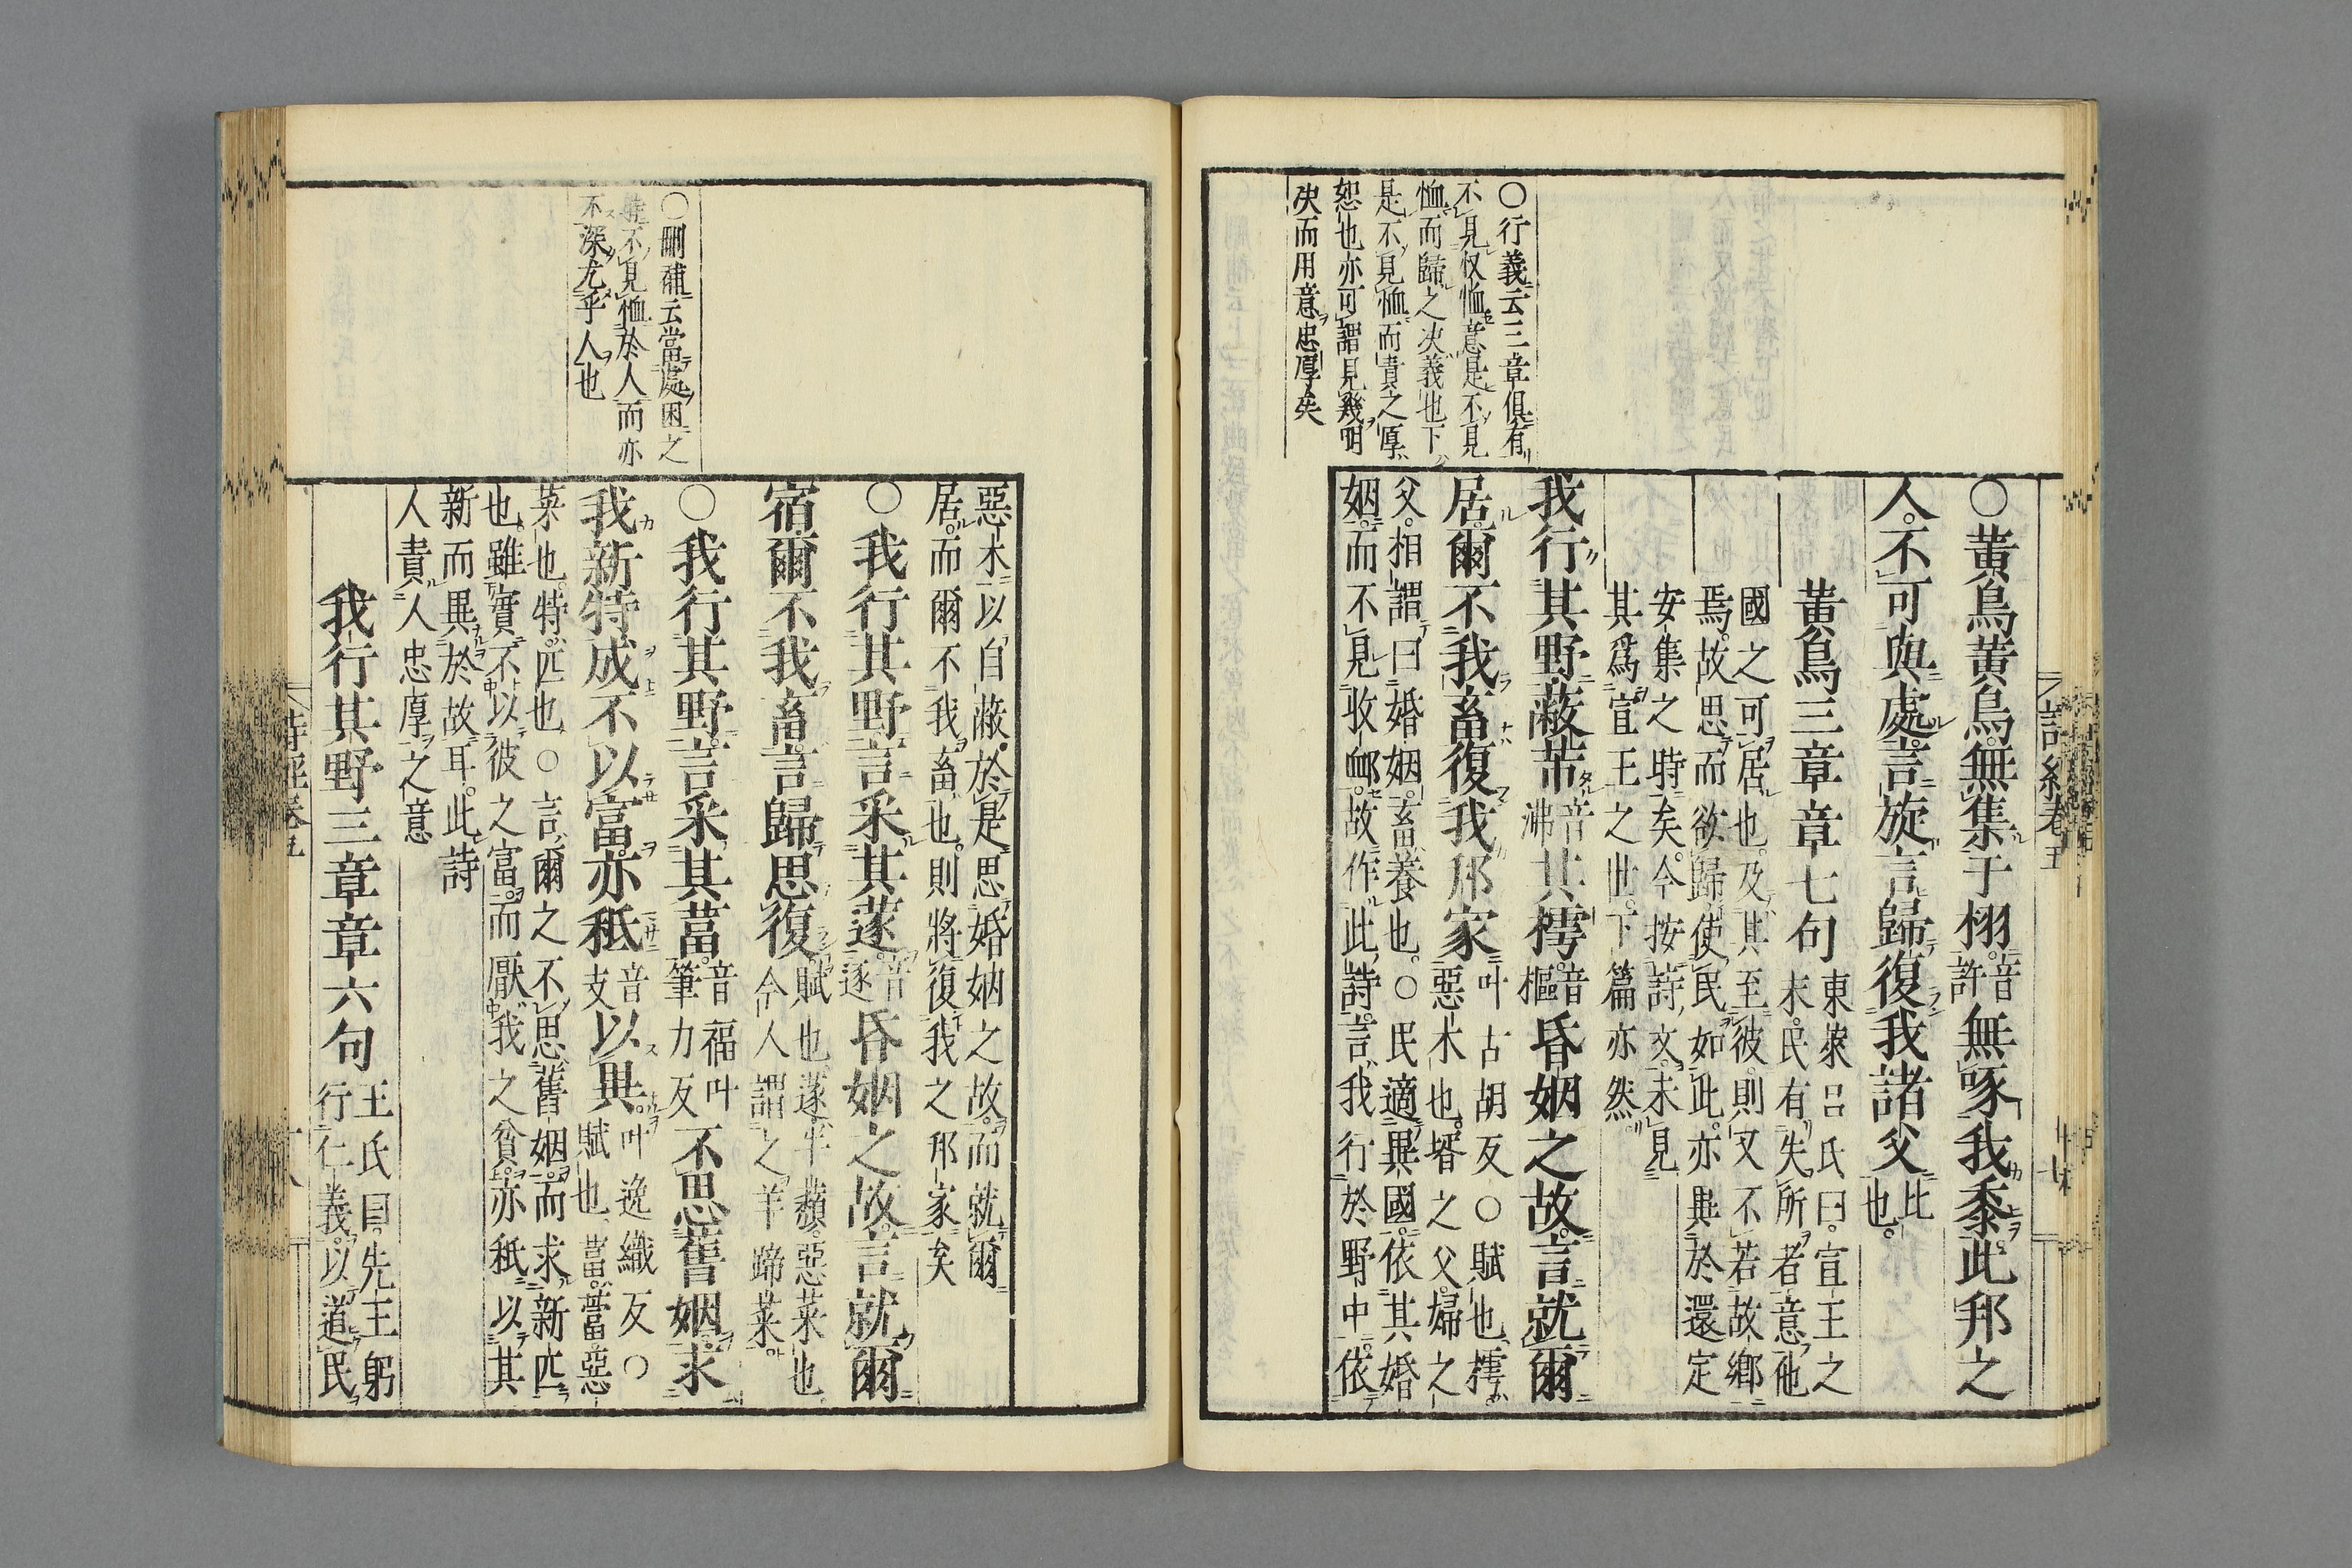 ○行義云三章俱有
不見収恤意是不見
恤而歸之決義也下
是不見恤而責之厚
恕也亦可謂見幾明
決而用意忠厚矣
○黄鳥黄鳥無集于栩音許無啄我黍此邦之
人不可與處言旋言歸復我諸父比也
黄鳥三章章七句東萊呂氏曰宣王之
末民有失所者意他
國之可居也及其至彼則又不若故鄉
焉故思而欲歸使民如此亦異於還定
安集之時矣今按詩文未見
其爲宣王之世下篇亦然
我行其野蔽芾音沸其樗音樞昏姻之故言就爾
居爾不我畜復我邦家叶古胡反○賦也樗
惡木也壻之父婦之
父相謂曰婚姻畜養也○民適異國依其婚
姻而不見收卹故作此詩言我行於野中依
○刪補云當思處困之
時不見恤於人而亦
不深尤乎人也
惡木以自蔽於是思婚姻之故而就爾
居而爾不我畜也則將復我之邦家矣
○我行其野言采其蓫音逐昏姻之故言就爾
宿爾不我畜言歸思復賦也蓫牛蘈惡菜也
今人謂之羊蹄菜
○我行其野言采其葍音福叶筆力反不思舊姻求
我新特成不以富亦秖音支以異叶逸織反○賦也葍䔰惡
菜也特匹也○言爾之不思舊姻而求新匹
也雖實不以彼之富而厭我之貧亦秖以其
新而異於故耳此詩
人責人忠厚之意
我行其野三章章六句王氏曰先王躬
行仁義以道民